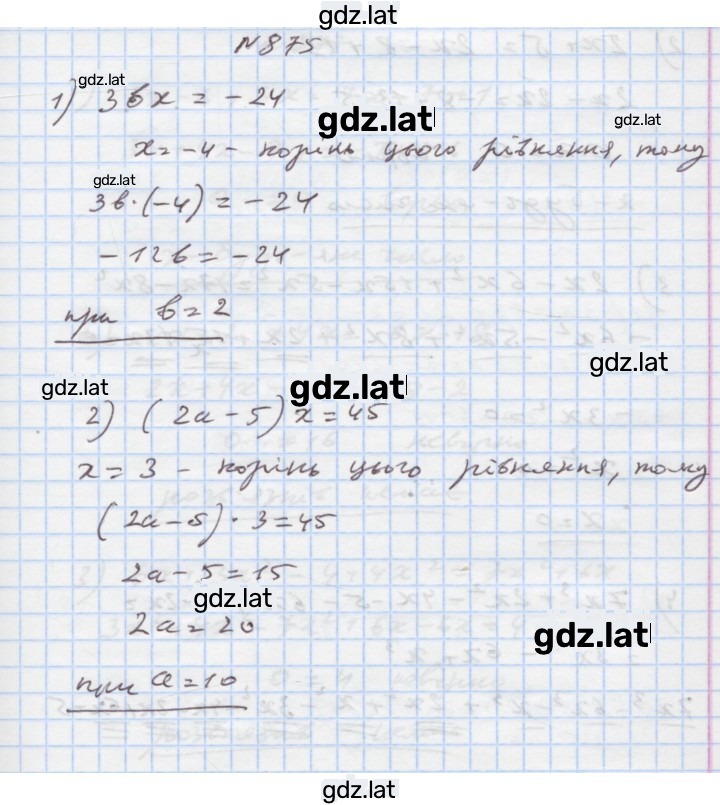 gdz.lat
№875
gdz.lat
1) 3bx = -24
gdz.lat
gdz.lat
x=-4 - корінь цього рівняння, тому
gdz.lat
3b·(-4) = -24
-12b = -24
при b=2
gdz.lat
gdz.lat
gdz.lat
2) (2a-5)x=45
x=3 - корінь цього рівняння, тому
(2a-5)·3=45
2a-5=15
gdz.lat
2a=20
gdz.lat
при a=10
gdz.lat